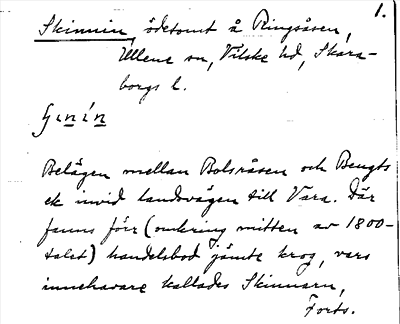 1.
Skinnin, ödetomt å Ringsåsen,
Ullene sn, Vilske hd, Skara-
borgs l.
Belägen mellan Bolsråsen och Bengts
ek invid landsvägen till Vara. Där
fanns förr (omkring mitten av 1800-
talet) handelsbod jämte krog, vars
innehavare kallades Skinnarn,
Forts.